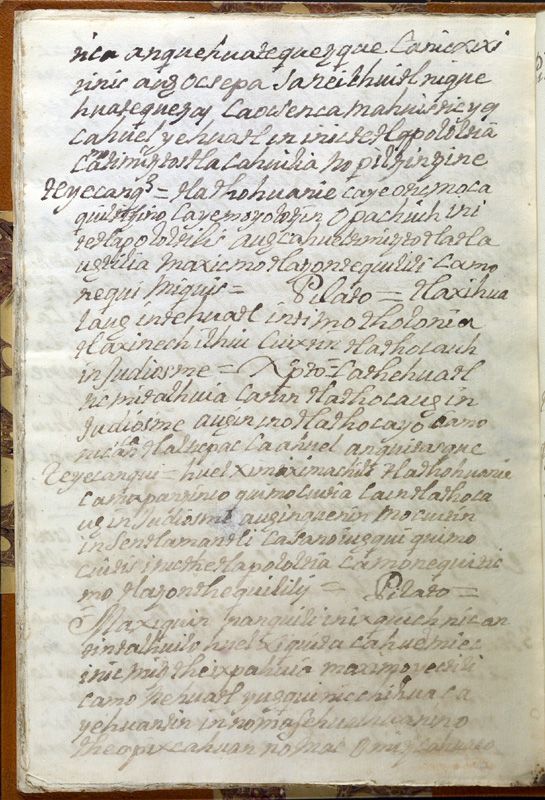 nica anquehuatequezque Canicxixi
inic aug ocsepa Sa neithuitl nique
huatequezqz Ca ocsenca mahuistic yeq
Cahuel yehuatl in inictetlapololtia
Catimiztotlacahuilia nopiltzintzine
teyecanq^e = tlathohuanie caye otimoca
quiltitzino Caye moyolotzin Opachiuh ini
tetlapololtilis aug cahuel timiztotlatla
ugtilia maxicmotlazontequililis Camo
nequi Miquis = Pilato = tlaxihua
laug intehuatl intimotholonia
tlaxinechilhui Cuix tin tlathocauh
in Judiosme = Xpto = Ca thehuatl
ticmitalhuia Canin tlathocaug in
Judiosme aug in notlathocayo Camo
nican tlalticpac Ca ahuel anquitasque
teyecanqui = huel ximoximachili tlathohuanie
Camapanninco quimocuitia Ca in tlathoca
ug in Judiosme aug inquenin mocuitin
in Sentlamantli Casano iugqui quimo
Cuitis inic thetlapololtia Camonequi tic
motlazonthequililis = Pilato =
Maxiquin nanquili in ixquich nican
tintalhuilo huel xiquita Cahuel miec
inic mitztheixpahuia maximoyectili
Camo nehuatl yugqui nicchihua Ca
yehuantin in nomasehualhuan in no
theopixcahuan nomac Omitzcahuaco